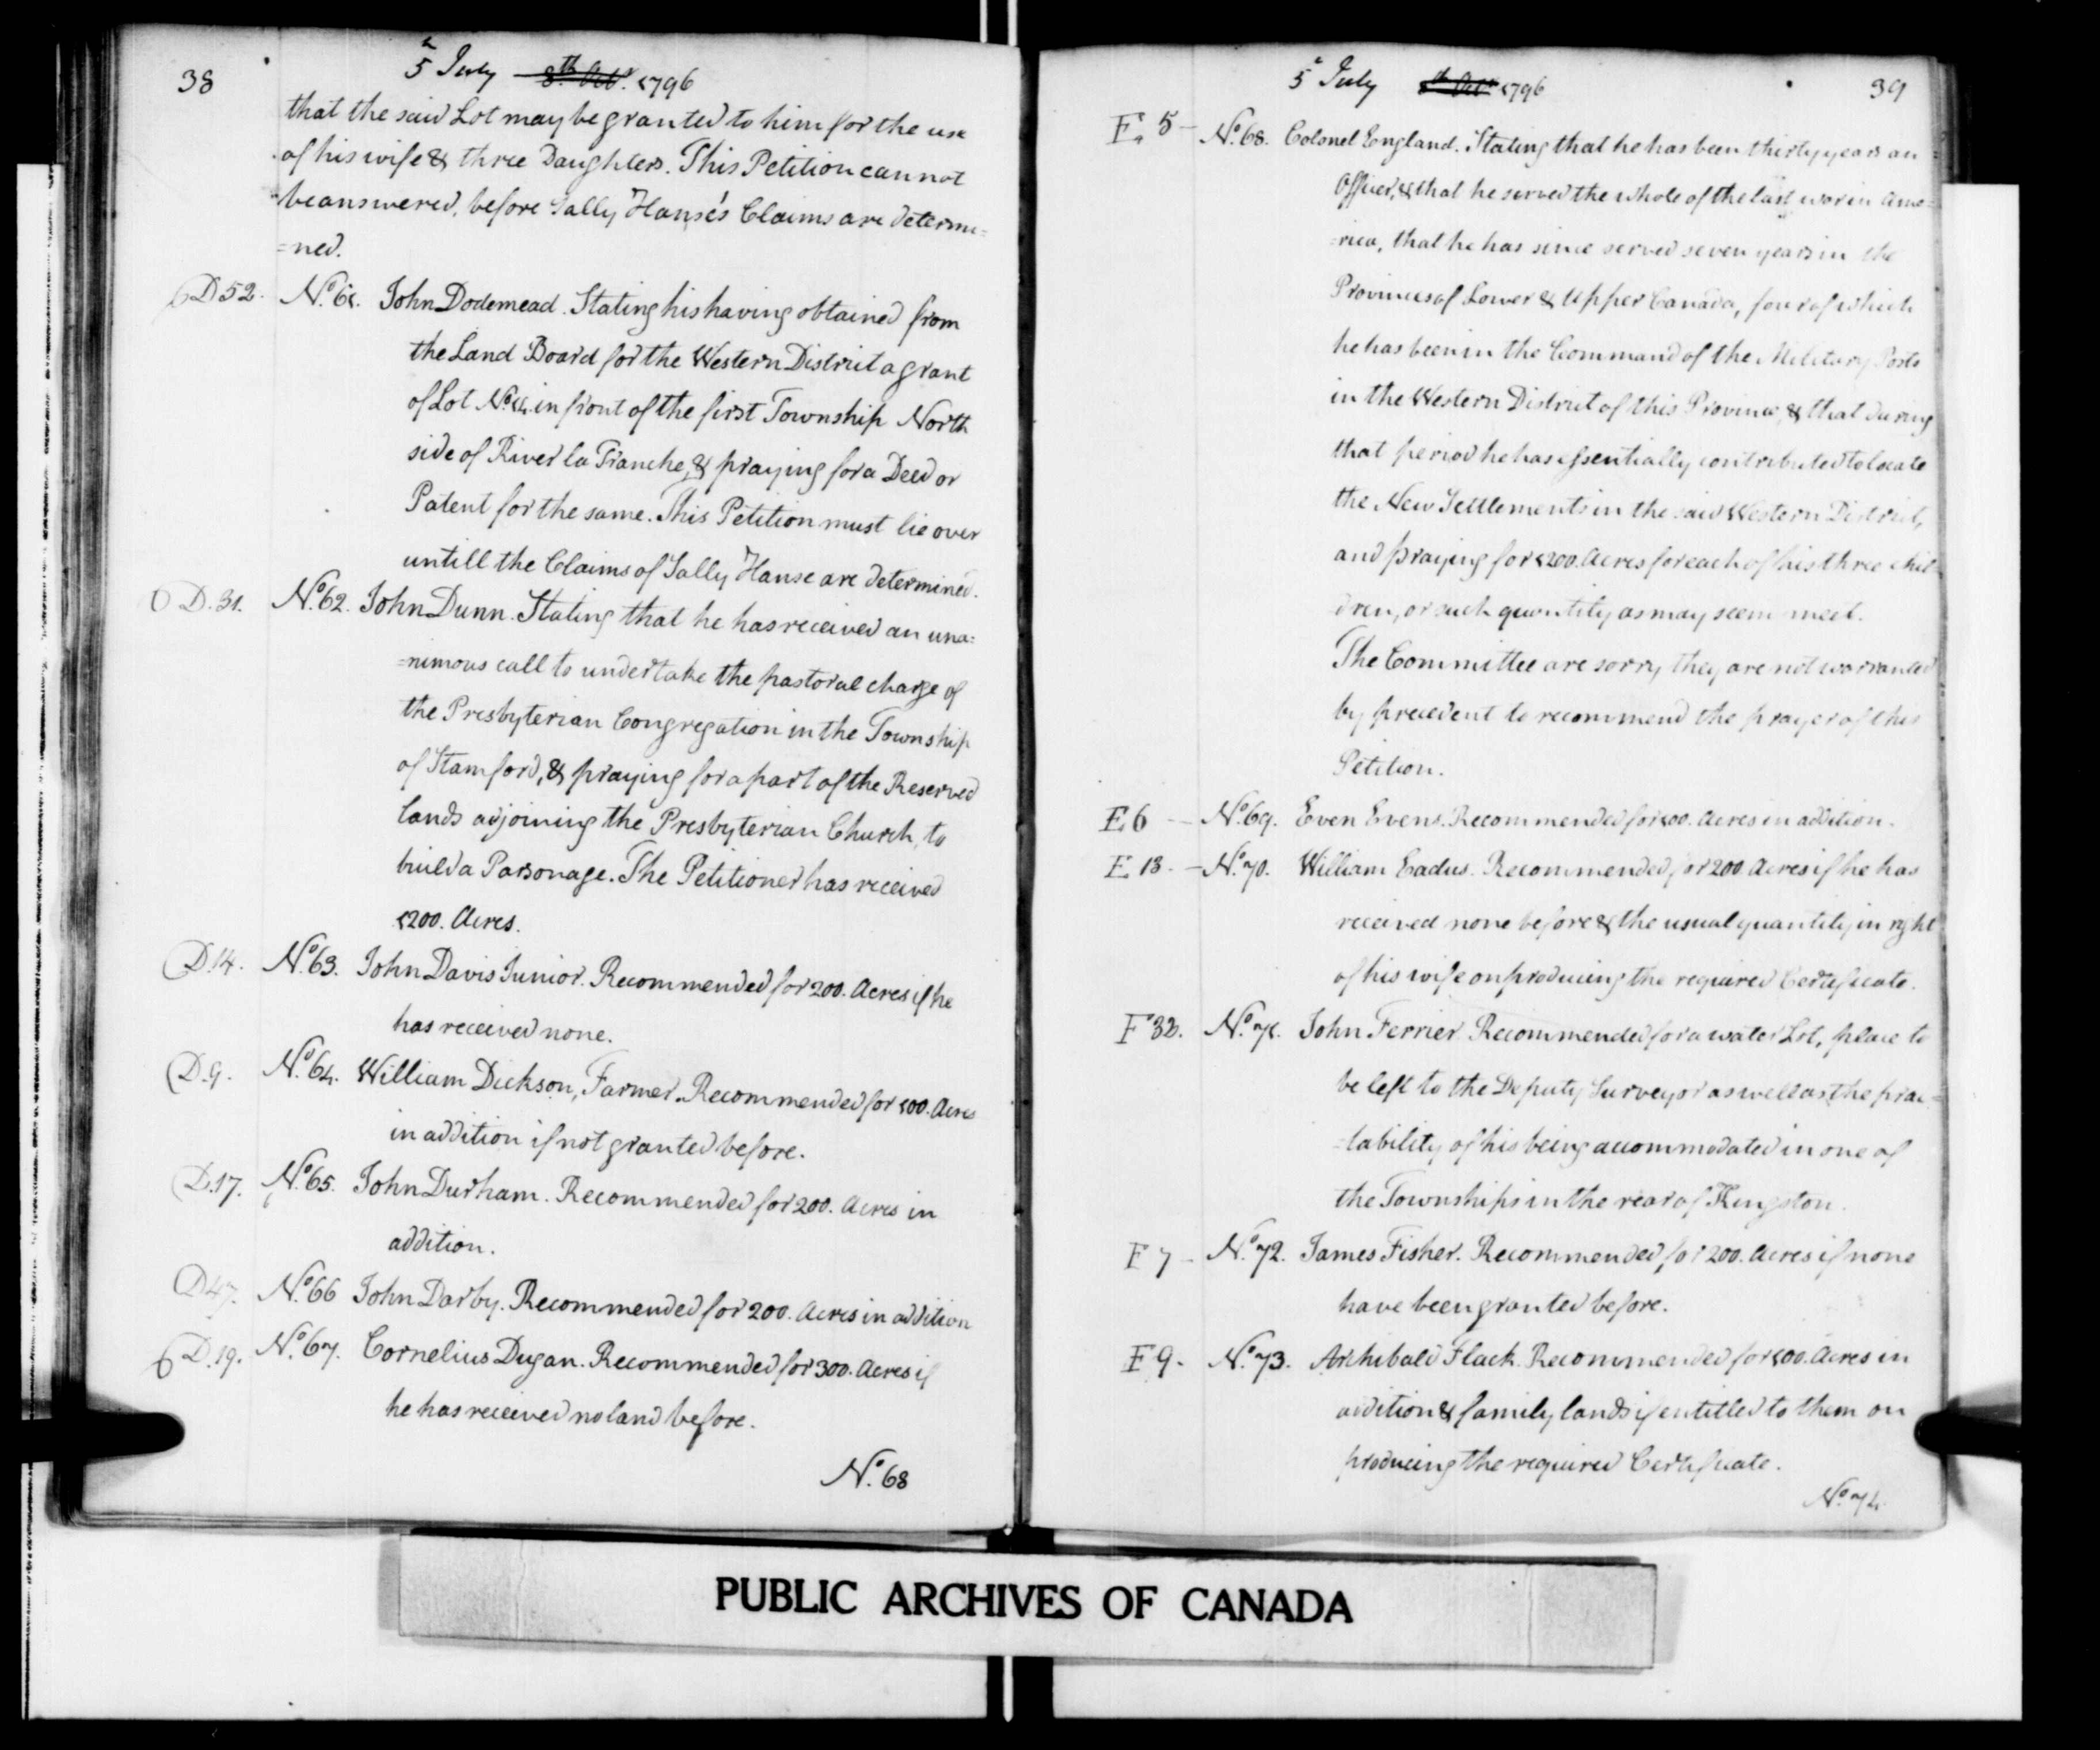 38
5th July 8th Octr. 1796
that the said Lot may be granted to him for the use
of his wife & three Daughters. This Petition cannot
be answered, before Sally Hanse's Claims are determi=
=ned.
D 52. No. 61. John Dodemead. Stating his having obtained from
the Land Board for the Western District a grant
of Lot No. 14. in front of the first Township North
side of River la Tranche, & praying for a Deed or
Patent for the same. This Petition must lie over
untill the Claims of Sally Hanse are determined.
D. 31. No. 62. John Dunn. Stating that he has received an una=
=nimous call to undertake the pastoral charge of
the Presbyterian Congregation in the Township
of Stamford, & praying for a part of the Reserved
lands adjoining the Presbyterian Church, to
build a Parsonage. The Petitioner has received
1200. Acres.
D. 14. No. 63. John Davis Junior. Recommended for 200. Acres if he
has received none.
D. 9. No. 64. William Dickson, Farmer. Recommended for 100. Acres
in addition if not granted before.
D. 17. No. 65. John Durham. Recommended for 200. Acres in
addition.
D 47. No. 66 John Darby. Recommended for 200. Acres in addition
D. 19. No. 67. Cornelius Dugan. Recommended for 300. Acres if
he has received no land before.
No. 68
5th July 8th Octr 1796
39
E. 5 - No. 68. Colonel England. Stating that he has been thirty years an
Officer, & that he served the whole of the last war in Ame=
=rica, that he has since served seven years in the
Provinces of Lower & Upper Canada, four of which
he has been in the Command of the Military Posts
in the Western District of this Province, & that during
that period he has essentially contributed to locate
the New Settlements in the said Western District,
and praying for 1200. Acres for each of his three chil=
dren, or such quantity as may seem meet.
The Committee are sorry they are not warranted
by precedent to recommend the prayer of this
Petition.
E 6 - No. 69. Even Evens. Recommended for 100. Acres in addition.
E 13. - No. 70. William Eadus. Recommended for 200 Acres if he has
received none before & the usual quantity in right
of his wife on producing the required Certificate.
F 32. No. 71. John Ferrier. Recommended for a water Lot, place to
be left to the Deputy Surveyor as well as the prac=
=tability of his being accommodated in one of
the Townships in the rear of Kingston.
F 7 - No. 72. James Fisher. Recommended for 200. Acres if none
have been granted before.
F 9. No. 73. Archibald Flack. Recommended for 100. Acres in
addition & family lands if entitled to them on
producing the required Certificate.
No. 74
PUBLIC ARCHIVES OF CANADA